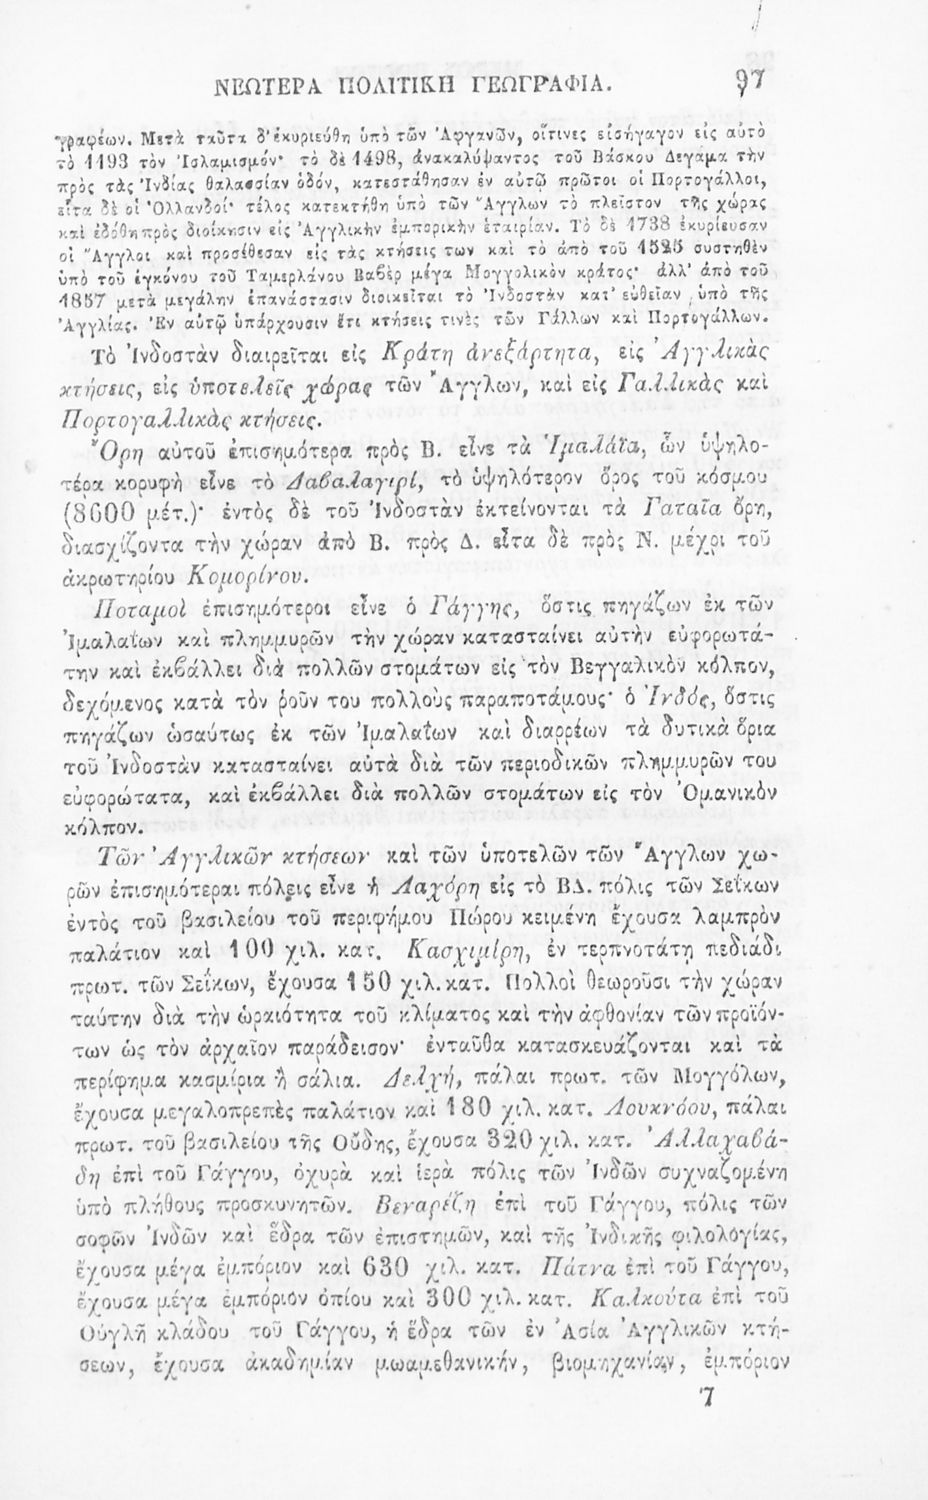 ΝΕΩΤΕΡΑ ΠΟΛΙΤΙΚΗ ΓΕΩΓΡΑΦΙΑ. 97
γραφέων. Μετὰ ταῦτα δ' ἐκυριεύθη ὑπὸ τῶν Ἀφγανῶν, οἵτινες εἰσήγαγον εἰς αὐτὸ
τὸ 1193 τὸν Ἰσλαμισμόν· τὸ δὲ 1498, ἀνακαλύψαντος τοῦ Βάσκου Δεγάμα τὴν
πρὸς τὰς Ἰνδίας θαλασσίαν ὁδόν, κατεστάθησαν ἐν αὐτῷ πρῶτοι οἱ Πορτογάλλοι,
εἶτα δὲ οἱ Ὁλλανδοί· τέλος κατεκτήθη ὑπὸ τῶν Ἄγγλων τὸ πλεῖστον τῆς χώρας
καὶ ἐδόθη πρὸς διοίκησιν εἰς Ἀγγλικὴν ἐμπορικὴν ἑταιρίαν. Τὸ δὲ 1738 ἐκυρίευσαν
οἱ Ἄγγλοι καὶ προσέθεσαν εἰς τὰς κτήσεις των καὶ τὸ ἀπὸ τοῦ 1525 συστηθὲν
ὑπὸ τοῦ ἐγκόνου τοῦ Ταμερλάνου Βαβὲρ μέγα Μογγολικὸν κράτος· ἀλλ' ἀπὸ τοῦ
1857 μετὰ μεγάλην ἐπανάστασιν διοικεῖται τὸ Ἰνδοστὰν κατ' εὐθεῖαν ὑπὸ τῆς
Ἀγγλίας. Ἐν αὐτῷ ὑπάρχουσιν ἔτι κτήσεις τινὲς τῶν Γάλλων καὶ Πορτογάλλων.
Τὸ Ἰνδοστὰν διαιρεῖται εἰς Κράτη ἀνεξάρτητα, εἰς Ἀγγλικὰς
κτήσεις, εἰς ὑποτελεῖς χώρας τῶν Ἄγγλων, καὶ εἰς Γαλλικὰς καὶ
Πορτογαλλικὰς κτήσεις.
Ὄρη αὐτοῦ ἐπισημότερα πρὸς Β. εἶνε τὰ Ἱμαλάϊα, ὧν ὑψηλο-
τέρα κορυφὴ εἶνε τὸ Δαβαλαγιρί, τὸ ὑψηλότερον ὄρος τοῦ κόσμου
(8600 μέτ.)· ἐντὸς δὲ τοῦ Ἰνδοστὰν ἐκτείνονται τὰ Γαταῖα ὄρη,
διασχίζοντα τὴν χώραν ἀπὸ Β. πρὸς Δ. εἶτα δὲ πρὸς Ν. μέχρι τοῦ
ἀκρωτηρίου Κομορίνου.
Ποταμοὶ ἐπισημότεροι εἶνε ὁ Γάγγης, ὅστις πηγάζων ἐκ τῶν
Ἱμαλαΐων καὶ πλημμυρῶν τὴν χώραν κατασταίνει αὐτὴν εὐφορωτά-
την καὶ ἐκβάλλει διὰ πολλῶν στομάτων εἰς τὸν Βεγγαλικὸν κόλπον,
δεχόμενος κατὰ τὸν ῥοῦν του πολλοὺς παραποτάμους· ὁ Ἰνδός, ὅστις
πηγάζων ὡσαύτως ἐκ τῶν Ἱμαλαΐων καὶ διαρρέων τὰ δυτικὰ ὅρια
τοῦ Ἰνδοστὰν κατασταίνει αὐτὰ διὰ τῶν περιοδικῶν πλημμυρῶν του
εὐφορώτατα, καὶ ἐκβάλλει διὰ πολλῶν στομάτων εἰς τὸν Ὁμανικὸν
κόλπον.
Τῶν Ἀγγλικῶν κτήσεων καὶ τῶν ὑποτελῶν τῶν Ἄγγλων χω-
ρῶν ἐπισημότεραι πόλεις εἶνε ἡ Λαχόρη εἰς τὸ ΒΔ. πόλις τῶν Σεΐκων
ἐντὸς τοῦ βασιλείου τοῦ περιφήμου Πώρου κειμένη ἔχουσα λαμπρὸν
παλάτιον καὶ 100 χιλ. κατ. Κασχιμίρη, ἐν τερπνοτάτῃ πεδιάδι
πρωτ. τῶν Σεΐκων, ἔχουσα 150 χιλ. κατ. Πολλοὶ θεωροῦσι τὴν χώραν
ταύτην διὰ τὴν ὡραιότητα τοῦ κλίματος καὶ τὴν ἀφθονίαν τῶν προϊόν-
των ὡς τὸν ἀρχαῖον παράδεισον· ἐνταῦθα κατασκευάζονται καὶ τὰ
περίφημα κασμίρια ἢ σάλια. Δελχή, πάλαι πρωτ. τῶν Μογγόλων,
ἔχουσα μεγαλοπρεπὲς παλάτιον καὶ 180 χιλ. κατ. Λουκνόου, πάλαι
πρωτ. τοῦ βασιλείου τῆς Οὔδης, ἔχουσα 320 χιλ. κατ. Ἀλλαχαβά-
δη ἐπὶ τοῦ Γάγγου, ὀχυρὰ καὶ ἱερὰ πόλις τῶν Ἰνδῶν συχναζομένη
ὑπὸ πλήθους προσκυνητῶν. Βεναρέζη ἐπὶ τοῦ Γάγγου, πόλις τῶν
σοφῶν Ἰνδῶν καὶ ἕδρα τῶν ἐπιστημῶν, καὶ τῆς Ἰνδικῆς φιλολογίας,
ἔχουσα μέγα ἐμπόριον καὶ 630 χιλ. κατ. Πάτνα ἐπὶ τοῦ Γάγγου,
ἔχουσα μέγα ἐμπόριον ὀπίου καὶ 300 χιλ. κατ. Καλκούτα ἐπὶ τοῦ
Οὐγλῆ κλάδου τοῦ Γάγγου, ἡ ἕδρα τῶν ἐν Ἀσίᾳ Ἀγγλικῶν κτή-
σεων, ἔχουσα ἀκαδημίαν μωαμεθανικήν, βιομηχανίαν, ἐμπόριον
7